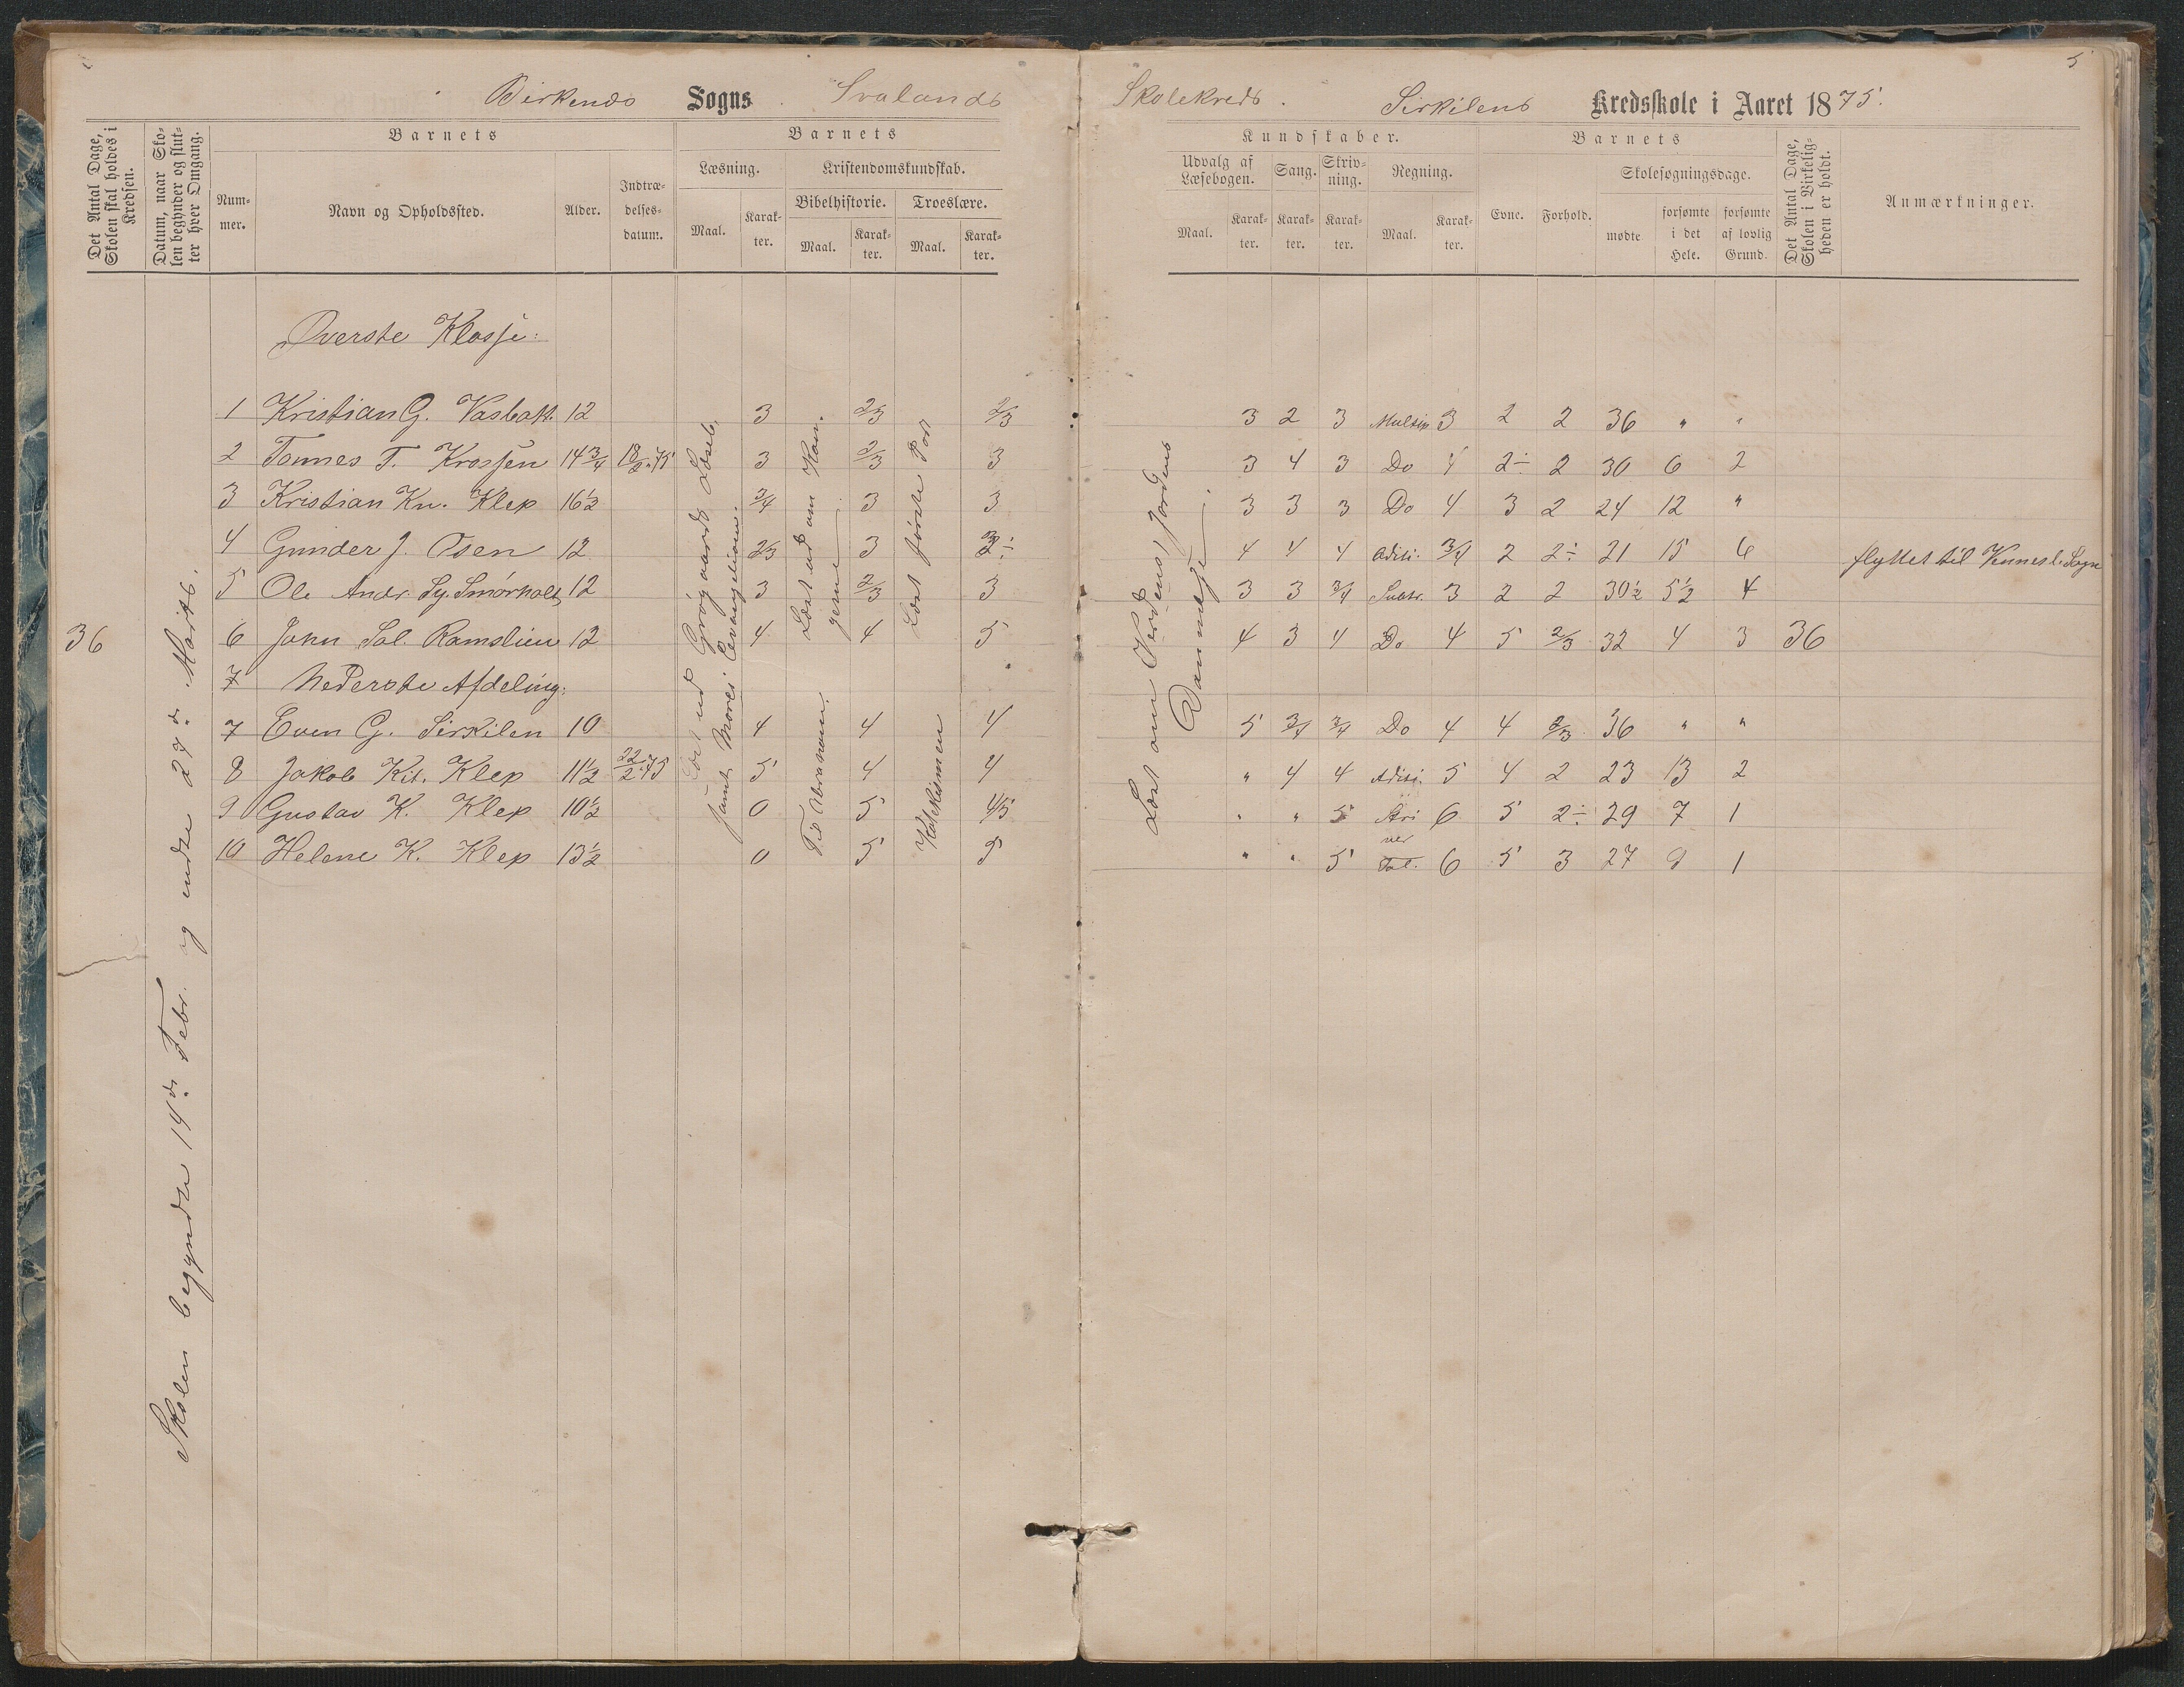 5
Birkenes Sogns Svalands Skolekreds. Sirkilens Kredsskole i Aaret 1875.
Det Antal Dage, Skolen skal holdes i Kredsen.
Datum, naar Skolen begynder og slutter hver Omgang.
Barnets
Nummer.
Navn og Opholdssted.
Alder.
Indtrædelsesdatum.
Barnets
Læsning.
Maal.
Karakter.
Kristendomskundskab.
Bibelhistorie.
Maal.
Karakter.
Troeslære.
Maal.
Karakter.
Kundskaber.
Udvalg af Læsebogen.
Maal.
Karakter.
Sang.
Karakter.
Skrivning.
Karakter.
Regning.
Maal.
Karakter.
Barnets
Evne.
Forhold.
Skolesøgningsdage.
mødte
forsømte i det Hele.
forsømte af lovlig Grund.
Det Antal Dage, Skolen i Virkeligheden er holdt.
Anmærkninger.
Øverste Klasse:
1 Kristian G. Vasbak. 12 3 2/3 2/3 3 2 3 Multip 3 2 2 36 " "
2 Tønnes T. Krossen 14 3/4 18/2 75 3 2/3 3 3 4 3 Do 4 2÷ 2 30 6 2
3 Kristian Kn. Klep 16½ 3/4 3 3 3 3 3 Do 4 3 2 24 12 "
4 Gunder J. Øsen 12 2/3 3 2÷ 4 4 4 Aditi. 3/4 2 2÷ 21 15 6 flyttet til Vennesl. Sogn
5 Ole Andr. Sy. Smørholt 12 3 2/3 3 3 3 3/4 Subtr. 3 2 2 30½ 5½ 4
36 6 John Sal. Ramslien 12 4 4 5 4 3 4 Do 4 5 2/3 32 4 3 36
7 Nederste Afdeling:
7 Even G. Sirkilen 10 4 4 4 5 3/4 3/4 Do 4 4 2/3 36 " "
8 Jakob Kit. Klep 11½ 22/2 75 5 4 4 " 4 4 Aditi. 5 4 2 23 13 2
9 Gustav K. Klep 10½ 0 5 4/5 " " 5 Skri 6 5 2÷ 29 7 1
ver
10 Helene K. Klep 13½ 0 5 5 " " 5 Tal. 6 5 3 27 9 1
Skolen begyndte 14de Febr. og endte 27de Marts.
Læst ud Grøgaards Læseb.
samt Morei Evangelium.
Læst ud om Kon
gerne
Til Abraham.
Læst første Part
Katekismen
Læst om Verdens, Jordens
Dannelse.